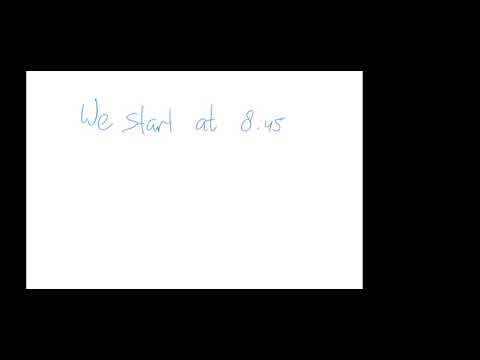 We start at 8.45